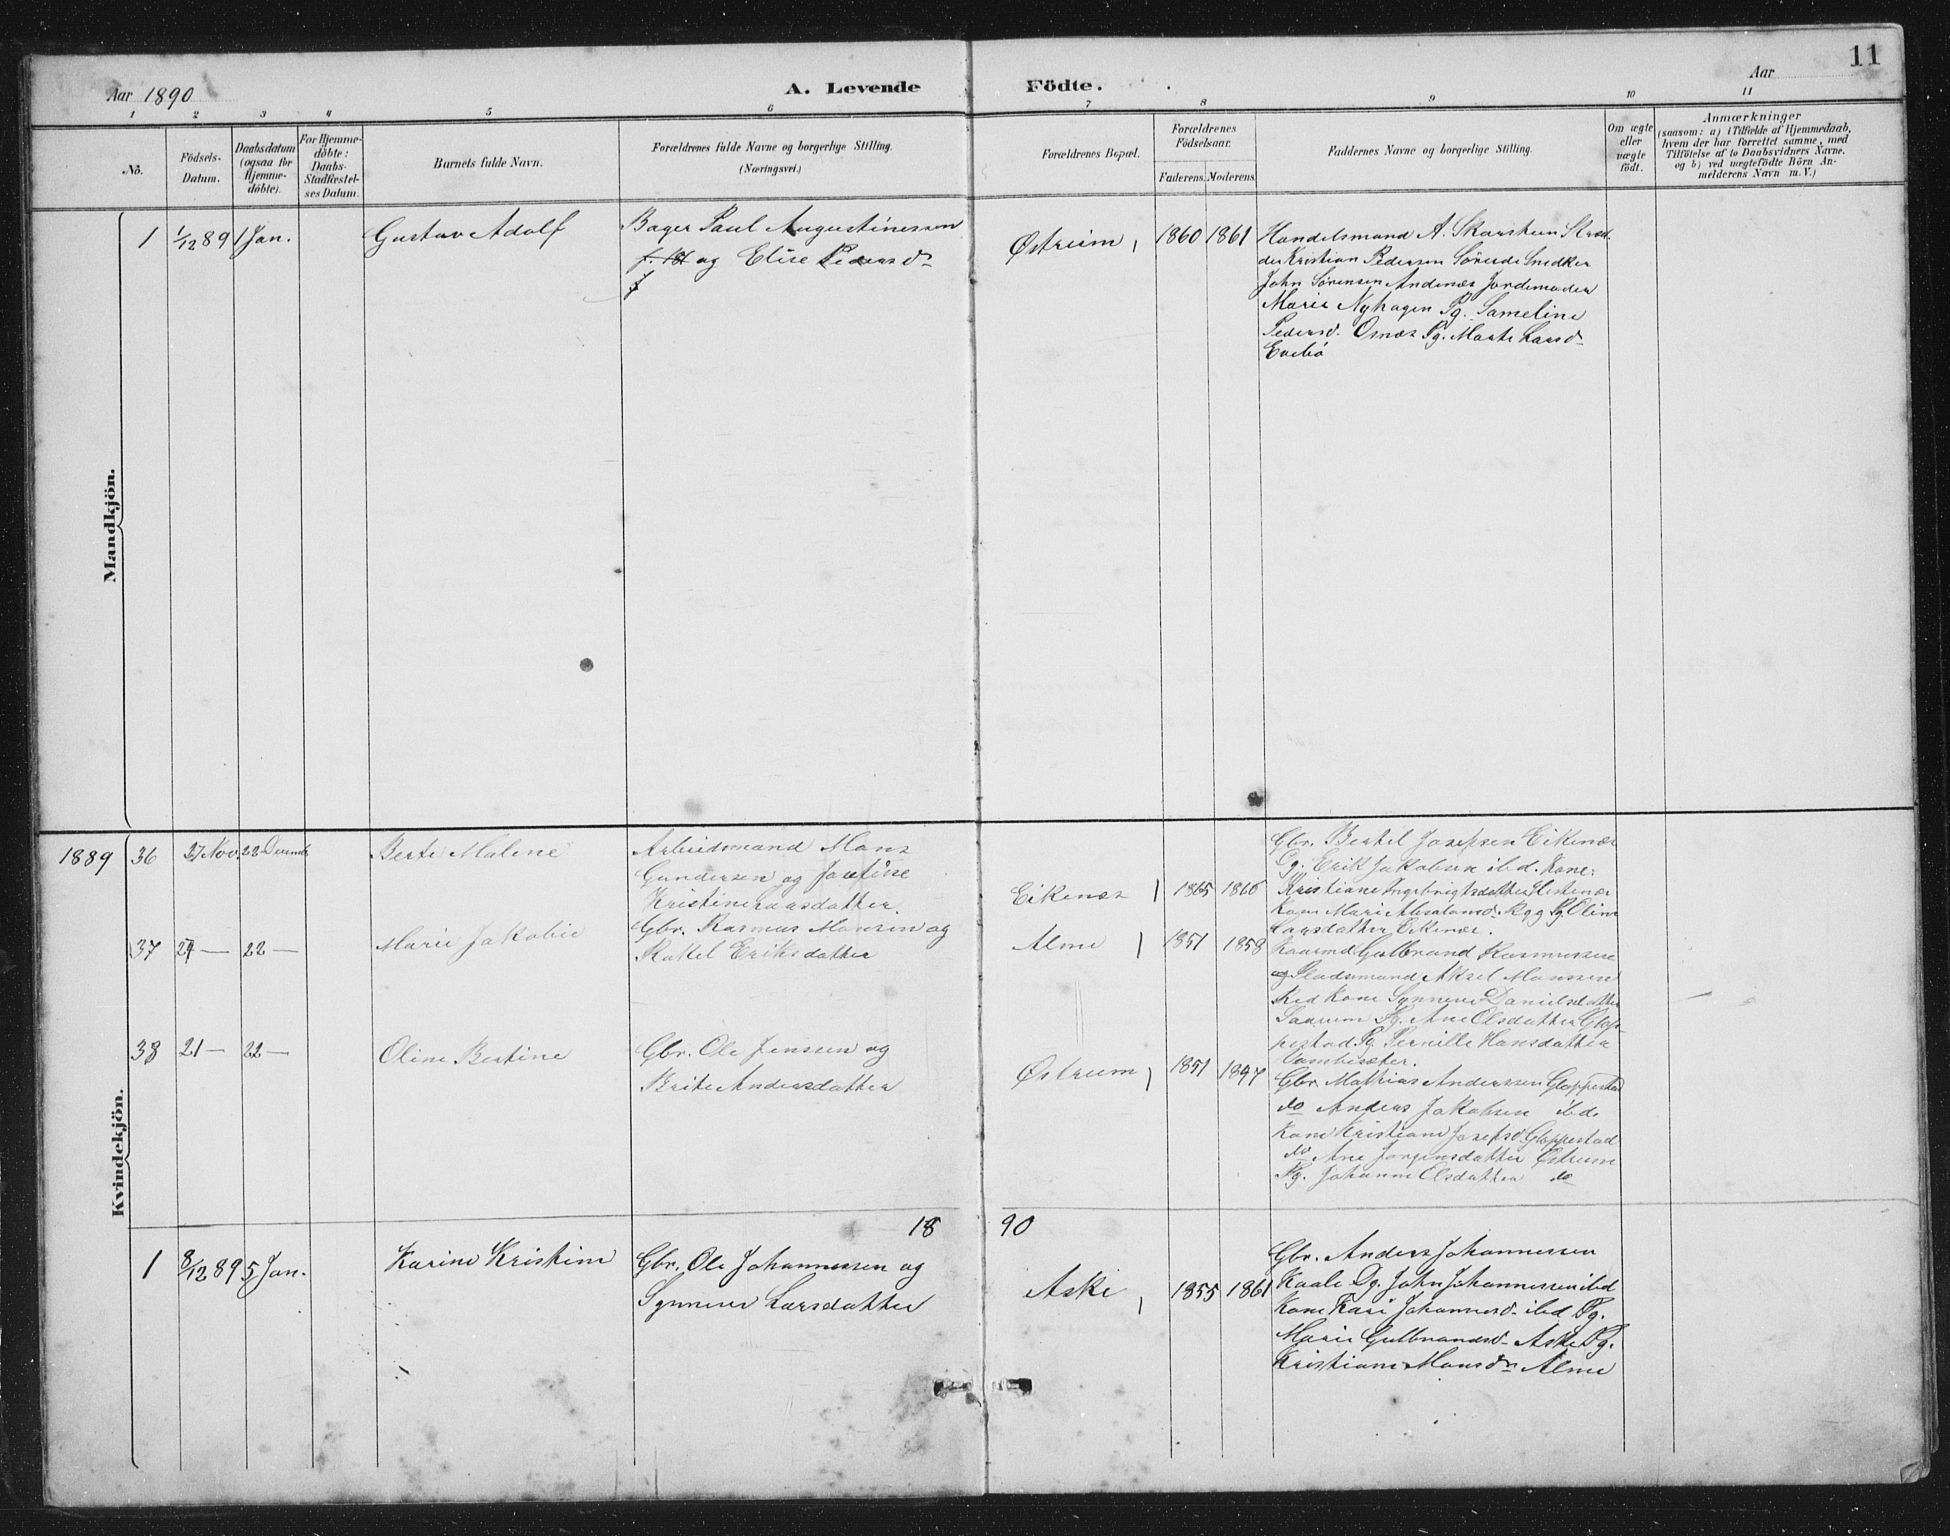 11
Aar 1890
A. Levende Födte.
Aar
1 2 3 4 5 6 7 8 9 10 11
No.
Födsels-
Datum.
Daabsdatum
(ogsaa for
Hjemme-
döbte).
For Hjemme-
döbte:
Daabs-
Stadfæstel-
ses Datum.
Barnets fulde Navn.
Forældrenes fulde Navne og borgerlige Stilling.
(Næringsvei.)
Forældrenes Bopæl.
Forældrenes
Födselsaar.
Faderens. Moderens.
Faddernes Navne og borgerlige Stilling.
Om ægte
eller
uægte
födt.
Anmærkninger
(saasom: a) i Tilfælde af Hjemmedaab,
hvem der har forrettet samme, med
Tilföielse af to Daabsvidners Navne.
og b) ved uægtefödte Börn An-
melderens Navn m. V.)
Mandkjön.
1 1/12 89 1 Jan. Gustav Adolf
Bager Paul Augustinussen
og Elise Pedersd-
Østreim 1860 1861
Handelsmand A. Skarstein
Kristian Pedersen Söreide Snedker
John Sörensen Andenæs Jordemoder
Marie Nyhagen Pg. Sameline
Pedersd. Osnæs Pg. Marte Larsd-
Evebö
Kvindekjön.
1889 36 27 Nov. 22 Decemb. Berte Malene
Arbeidsmand Mons
Gundersen og Josefine
Kristine Larsdatter.
Eikenæs 1865 1866
Gbr. Bertel Josefsen Eikenæs
Pg. Erik Jakobsen ibd. Kone
Kristiane Ingebrigtsdatter Hestenæs
Kone Marie Absalonsd. Pg. Oline
Larsdatter Eikenæs.
37 24 — 22 — Marie Jakobie
Gbr. Rasmus Monsen og
Rakel Eriksdatter
Alme 1851 1858
Gulbrand Rasmussen
og Pladsmand Aksel Monssen
Kone Synneve Danielsdatter
Pg. Ane Olsdatter Glop-
pestad Pg. Pernille Hansdatter
38 21 — 22 — Oline Bertine
Gbr. Ole Jenssen og
Brite Andersdatter
Østreim 1851 1847
Gbr. Mathias Anderssen Gloppestad
do Anders Jakobsen ibd.
Kone Kristiane Josefsd. Gloppestad
do Ane Jørgensdatter Østreim
Pg. Johanne Olsdatter do
18 90
1 8/12 89 5 Jan. Karine Kristine
Gbr. Ole Johannessen og
Synneve Larsdatter
Aske 1855 1861
Gbr. Anders Johannessen
Kaale Pg. John Johannessen ibd
Kone Kari Johannesd- ibd Pg.
Marie Gulbrandsd- Aske Pg.
Kristiane Monsd- Alme